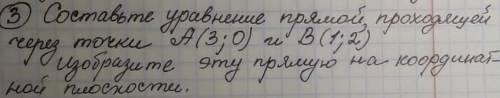 ③ Составьте уравнение прямой, проходящей
через точки A(3;0) и B(1;2)
Изобразите эту прямую на координат-
ной плоскости.